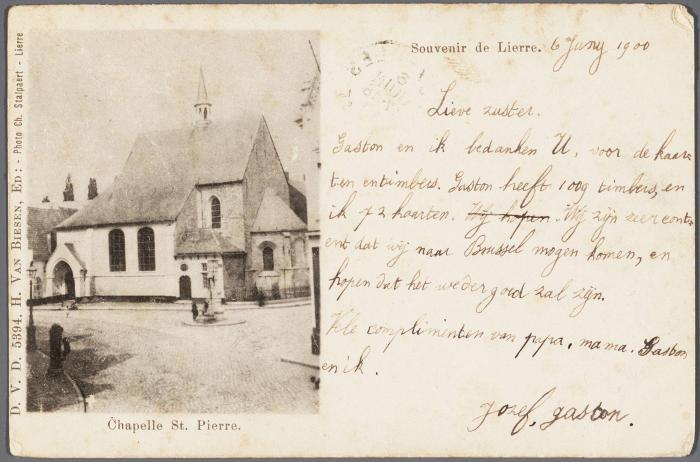 D. V. D. 5394. H. VAN BIESEN, ED: - Photo Ch. Stalpaert - Lierre
Souvenir de Lierre. 6 Juny 1900
Lieve zuster.
Gaston en ik bedanken U, voor de kaar-
ten entimbers. Gaston heeft 1009 timbers, en
ik 72 kaarten. Wij hopen. Wij zijn zeer cont-
ent dat wij naar Brussel mogen komen, en
hopen dat het weder goed zal zijn.
complimenten van papa, mama. Gaston
en ik.
Jozef, gaston.
Chapelle St. Pierre.